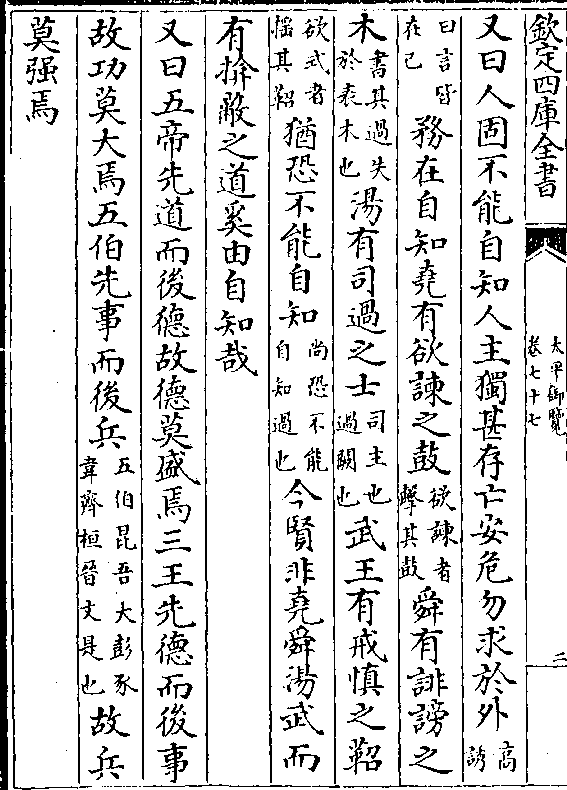 欽定四庫全書
太平御覽
卷七十七
二
又曰人固不能自知人主獨甚存亡安危勿求於外高誘
曰言皆在己務在自知堯有欲諫之鼓欲諫者擊其鼓舜有誹謗之
木書其過失於表木也湯有司過之士司主也過闕也武王有戒慎之鞀
欲戒者搖其鞀猶恐不能自知尚恐不能自知過也今賢非堯舜湯武而
有揜蔽之道奚由自知哉
又曰五帝先道而後德故德莫盛焉三王先德而後事
故功莫大焉五伯先事而後兵五伯昆吾大彭豕韋齊桓晉文是也故兵
莫强焉